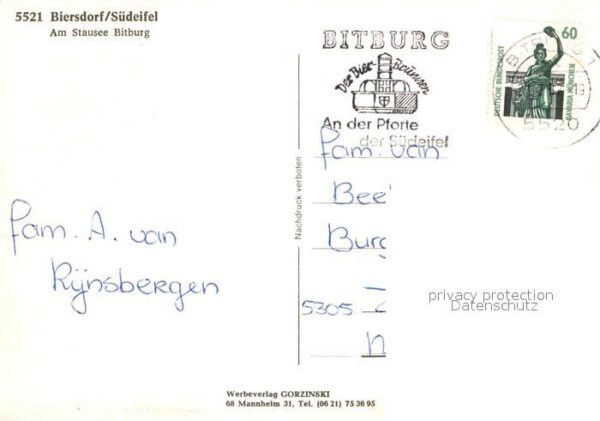 5521 Biersdorf/Südeifel
Am Stausee Bitburg
BITBURG
Der Bier-Brunnen
An der Pforte
der Südeifel
60
DEUTSCHE BUNDESPOST
BAVARIA MÜNCHEN
5520
Nachdruck verboten
fam. van
Bee
Burg
5305
fam. A. van
Rijnsbergen
privacy protection
Datenschutz
Werbeverlag GORZINSKI
68 Mannheim 31, Tel. (06 21) 75 36 95